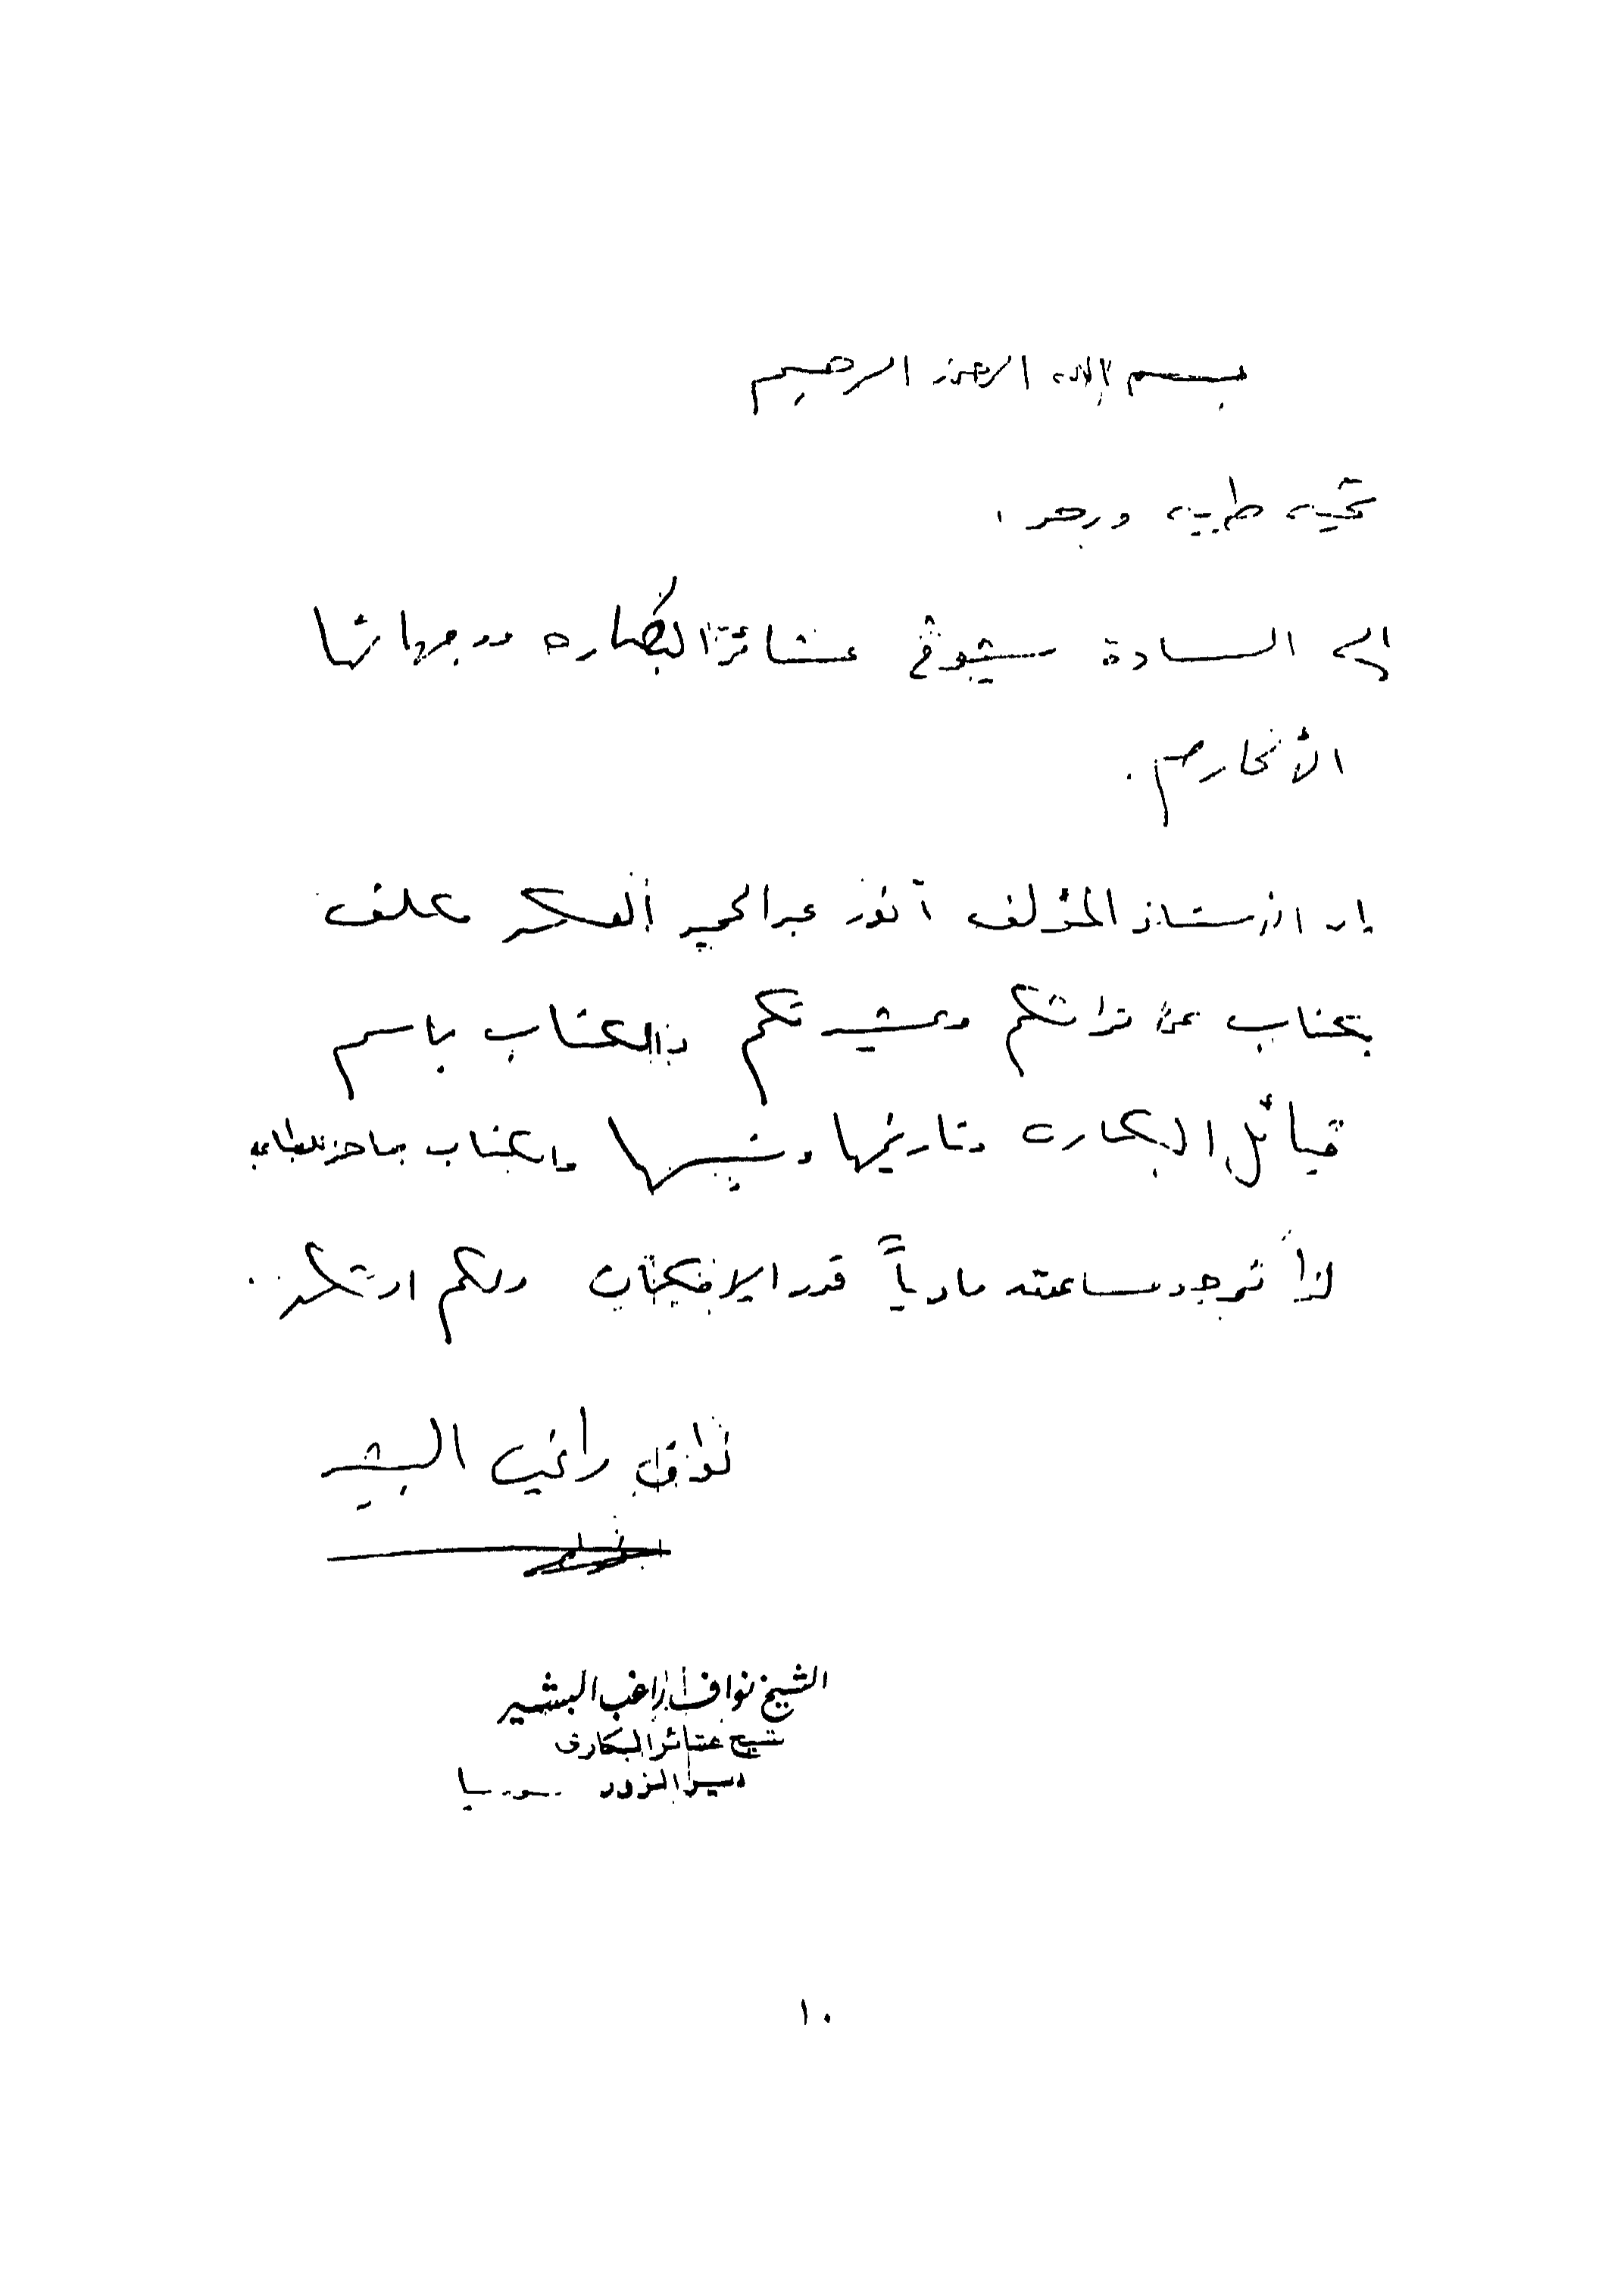 بسم الله الرحمن الرحيم
تحيه طيبه وبعد ،
إلى السادة شيوخ عشائر البكاره ووجهائها
الأكارم .
إن الأستاذ المؤلف أنور عبد الحميد العسكر مكلف
بكتاب عن تراثكم وعشيرتكم والكتاب باسم
قبائل البكاره وتاريخها ونسبها والكتاب جاهز للطباعه
لذا نرجو مساعدته مادياً قدر الإمكان ولكم الشكر .
نواف راغب البشير
الشيخ نواف راغب البشير
شيخ عشائر البكارة
دير الزور سوريا
١٠